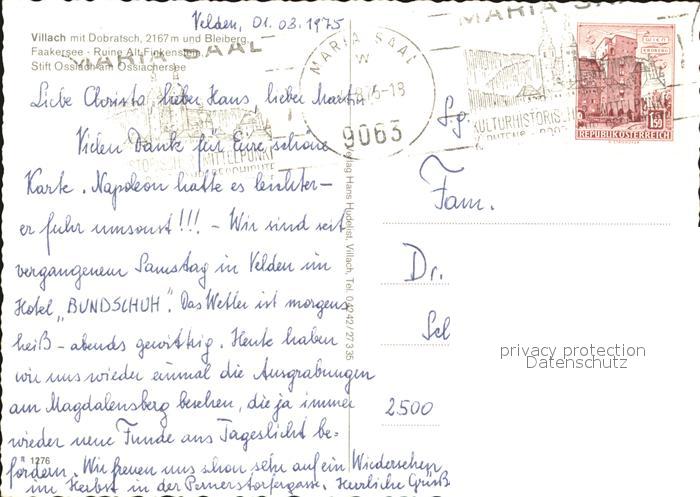 Velden, 01.08.1975
Villach mit Dobratsch, 2167 m und Bleiberg,
Faakersee - Ruine Alt Finkenstein,
Stift Ossiach am Ossiachersee
MARIA SAAL
MARIA SAAL
W
75-13
9063
MARIA SAAL
KULTURHISTORISCHE
REPUBLIK ÖSTERREICH
WIEN
1.50
Liebe Christa, lieber Hans, lieber Martin
STORISCHER MITTELPUNKT
Vielen Dank für Eure schöne
Karte. Napoleon hatte es leichter –
er fuhr umsonst!!! – Wir sind seit
vergangenem Samstag in Velden im
Hotel „BUNDSCHUH". Das Wetter ist morgens
heiß – abends gewittrig. Heute haben
wir uns wieder einmal die Ausgrabungen
am Magdalensberg besehen, die ja immer
wieder neue Funde ans Tageslicht be=
fördern. Wir freuen uns schon sehr auf ein Wiedersehen
im Herbst in der Pernerstorfergasse. Herzliche Grüße
1276
Verlag Hans Huderlist, Villach, Tel. 0 42 42 / 27 3 36
Sg.
Fam.
Dr.
Sch
2500
privacy protection
Datenschutz